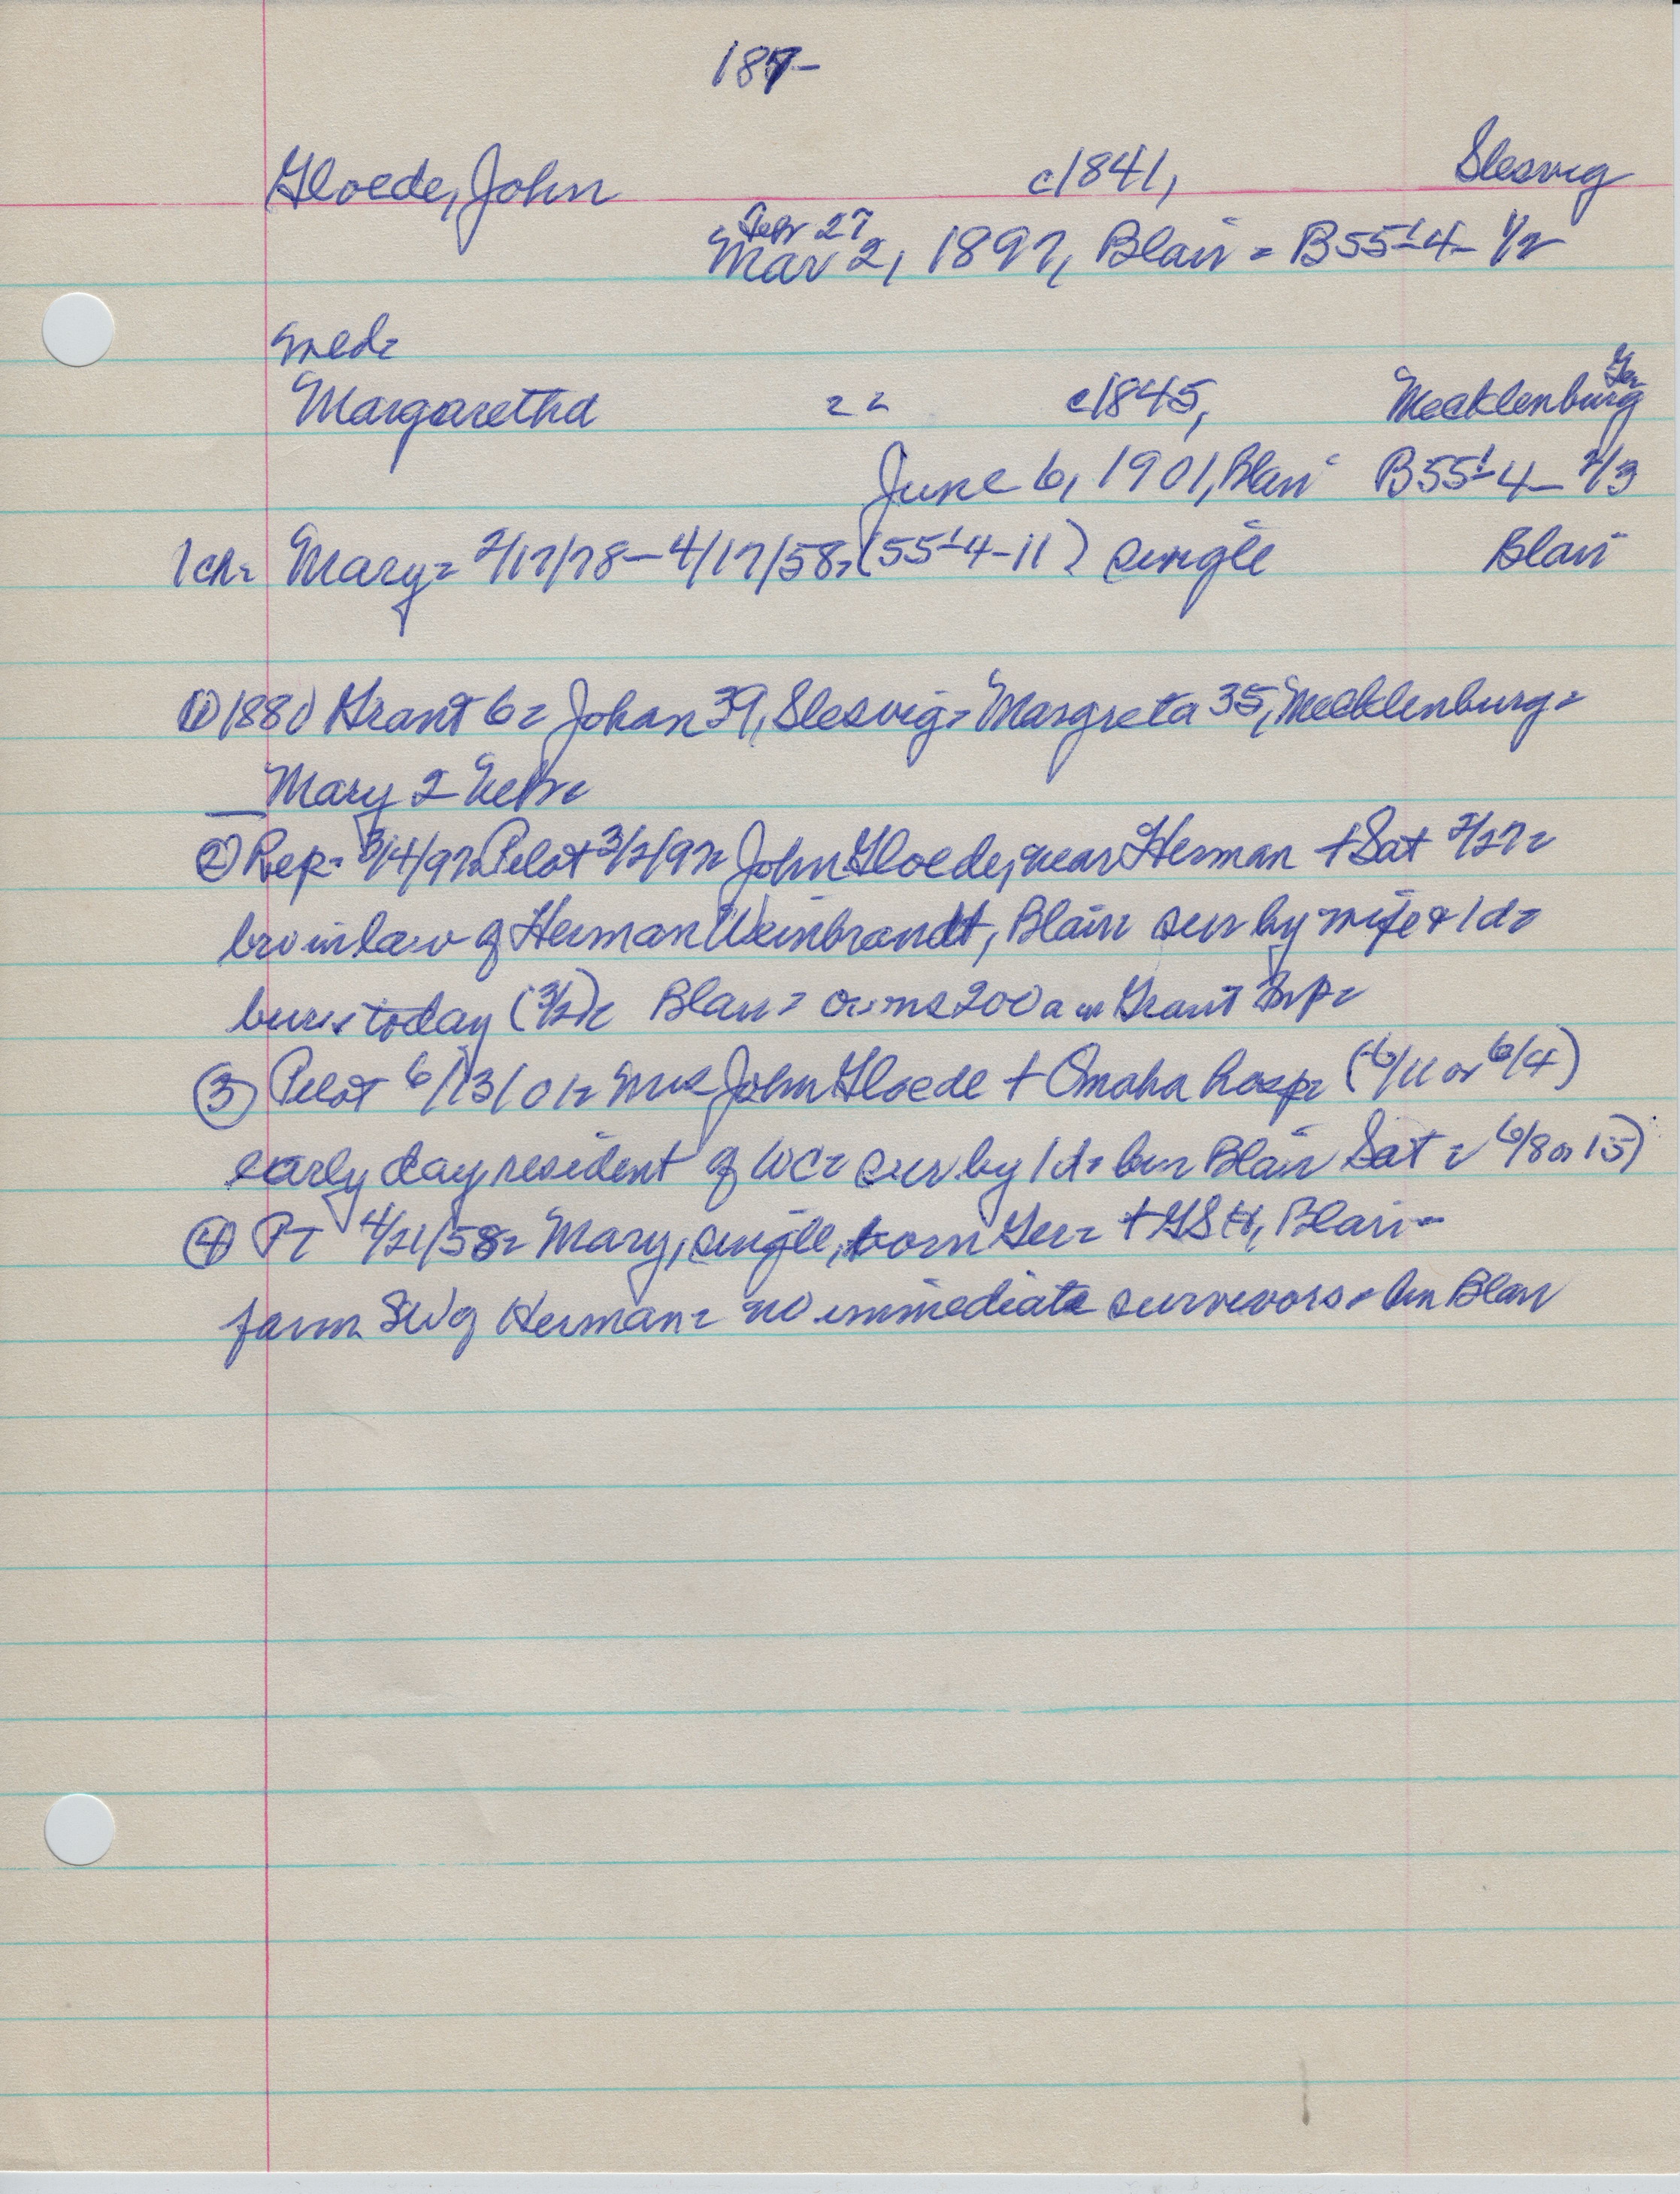 187-
Gloede, John c1841, Slesvig
Febr 27
Mar 2, 1897, Blair = B551-4- 1/2
med= Ger
Margaretha == c1845, Mecklenburg
June 6, 1901, Blair B551-4- 2/3
1 ch= Mary= 2/17/78-4/17/58, (551-4-11) single Blair
① 1880 Grant 6= Johan 39, Slesvig= Margreta 35, Mecklenburg=
Mary 2 Nebr=
② Rep= 3/4/97= Pilot 3/2/97= John Gloede, near Herman + Sat 2/27=
bro in law of Herman Weinbrandt, Blair sur by wife & 1 d=
bur. today (3/2)= Blair= owns 200 a in Grant Twp=
③ Pilot 6/13/01= Mrs John Gloede + Omaha hosp= (6/11 or 6/4)
early day resident of WC= sur by 1 d= bur Blair Sat = 6/8 or 15)
④ PT 4/21/58= Mary, single, born Ger= + GSH, Blair=
farm SW of Herman= no immediate survivors= bur Blair